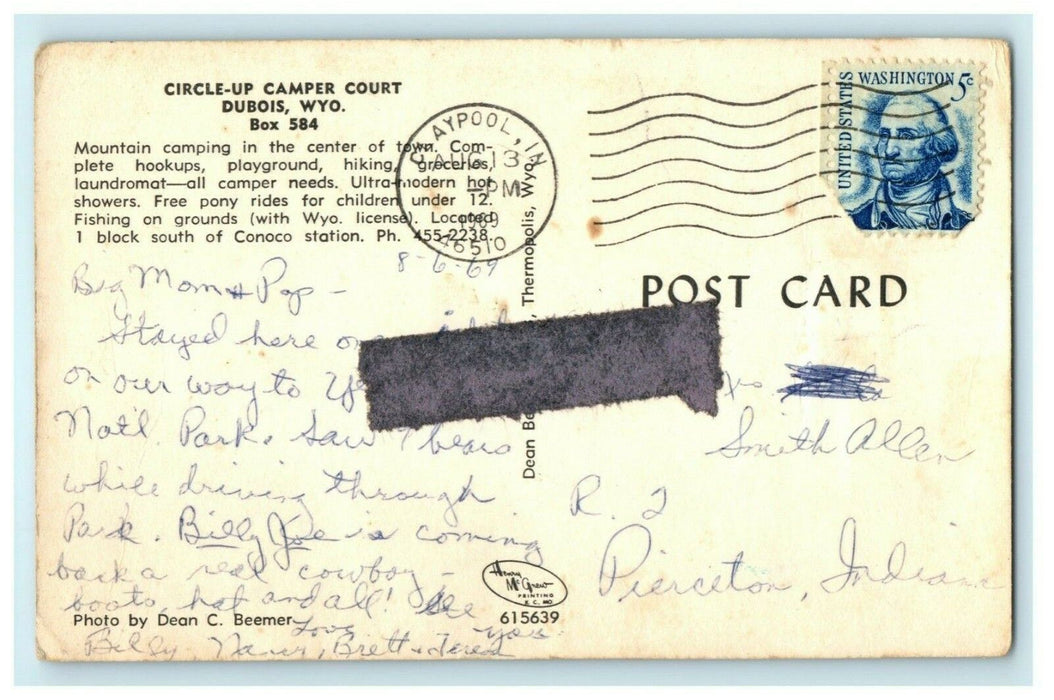 CIRCLE-UP CAMPER COURT
DUBOIS, WYO.
Box 584
Mountain camping in the center of town. Com-
plete hookups, playground, hiking, groceries,
laundromat—all camper needs. Ultra-modern hot
showers. Free pony rides for children under 12.
Fishing on grounds (with Wyo. license). Located
1 block south of Conoco station. Ph. 455-2238.
CLAYPOOL, IN
AUG 13
PM
1969
46510
UNITED STATES
WASHINGTON 5c
POST CARD
8-6-69
Big Mom & Pop -
Stayed here
on our way to
Natl. Park. Saw 7 bears
while driving through
Park. Billy Joe is coming
back a real cowboy -
boots, hat and all! See
you
Love
Billy, Brett &
Smith Allen
R. 2
Pierceton, Indiana
Dean
Thermopolis, Wyo.
Henry
McGrew
PRINTING
K. C. MO
Photo by Dean C. Beemer
615639